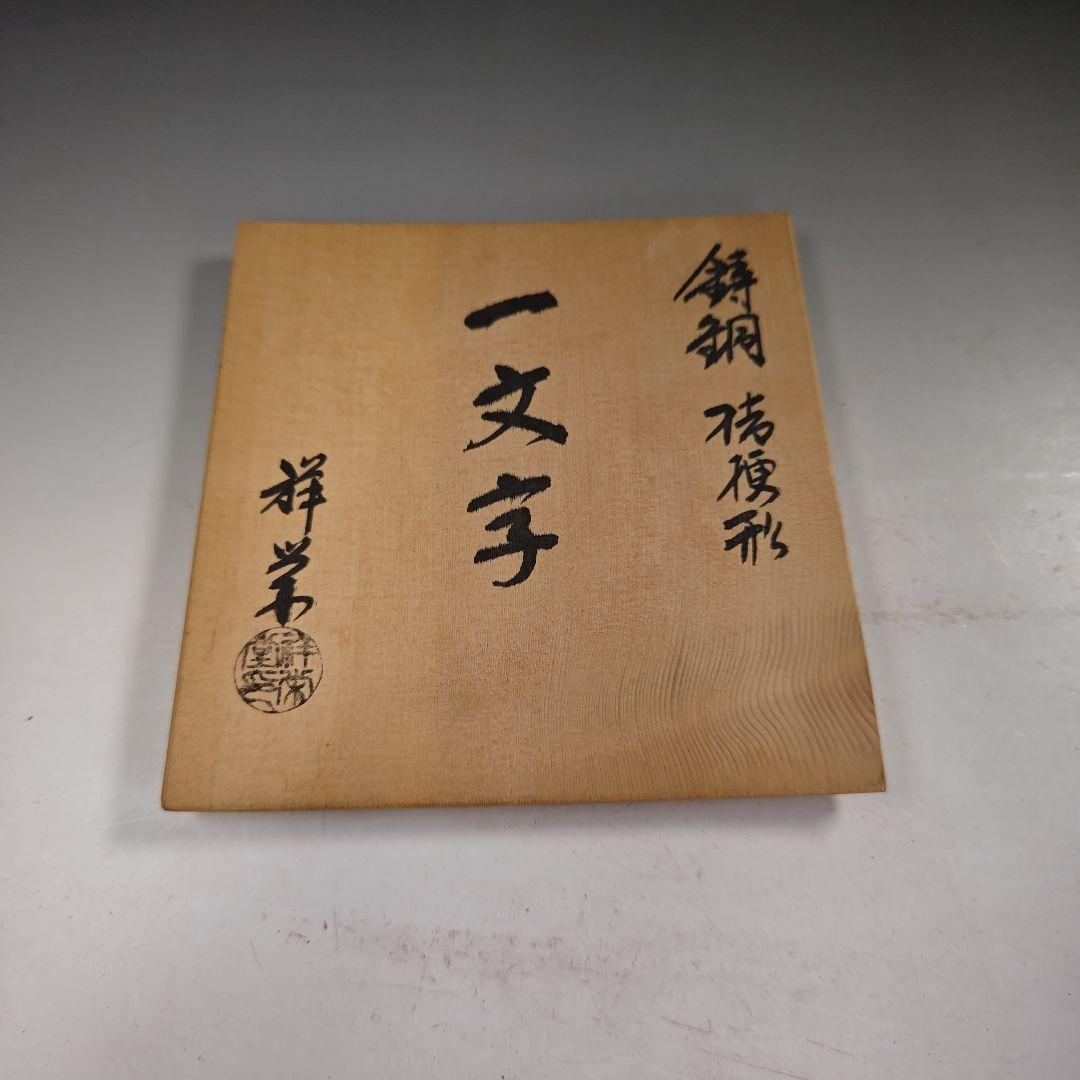 鋳銅 桔梗形
一文字
祥栄
祥栄